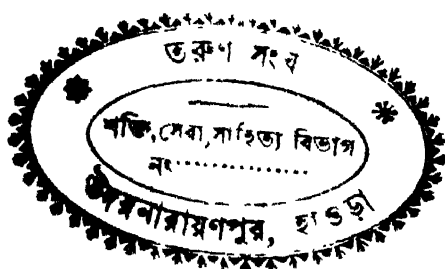 তরুণ সংঘ
শক্তি, সেবা, সাহিত্য বিভাগ
নং...............
উদয়নারায়ণপুর, হাওড়া